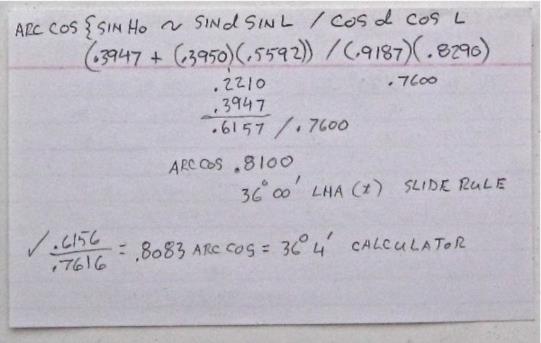 ARC COS { SIN Ho ~ SIN d SIN L / COS d COS L
(.3947 + (.3950)(.5592)) / (.9187)(.8290)
.2210 .7600
.3947
.6157 / .7600
ARC COS .8100
36° 00' LHA (t) SLIDE RULE
✓ .6156
.7616 = .8083 ARC COS = 36° 4' CALCULATOR